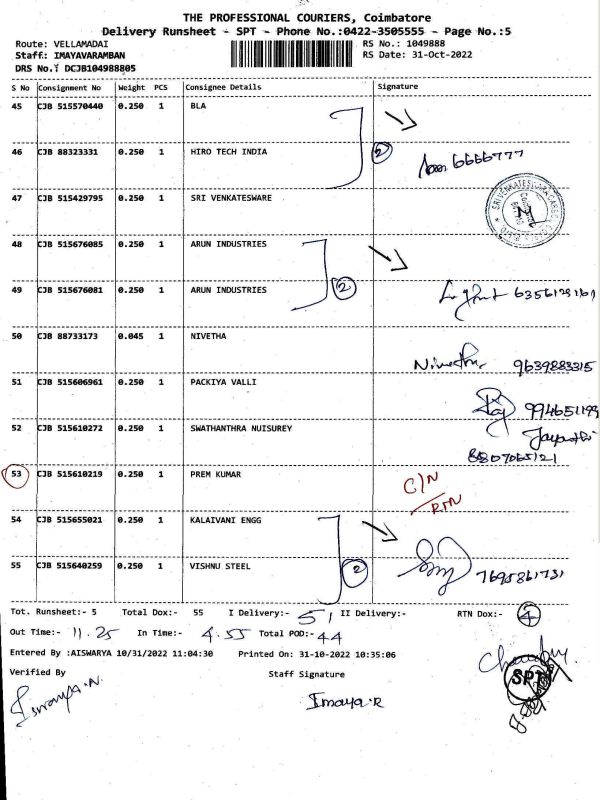 THE PROFESSIONAL COURIERS, Coimbatore
Delivery Runsheet - SPT - Phone No.:0422-3505555 - Page No.:5
Route: VELLAMADAI RS No.: 1049888
Staff: IMAYAVARAMBAN RS Date: 31-Oct-2022
DRS No.: DCJB104988805
S No Consignment No Weight PCS Consignee Details Signature
45 CJB 515570440 0.250 1 BLA
46 CJB 88323331 0.250 1 HIRO TECH INDIA 2 6666777
47 CJB 515429795 0.250 1 SRI VENKATESWARE
48 CJB 515676085 0.250 1 ARUN INDUSTRIES
49 CJB 515676081 0.250 1 ARUN INDUSTRIES 2
50 CJB 88733173 0.045 1 NIVETHA Nivetha 9639883315
51 CJB 515606961 0.250 1 PACKIYA VALLI 994651199
52 CJB 515610272 0.250 1 SWATHANTHRA NUISUREY
8807065121
53 CJB 515610219 0.250 1 PREM KUMAR C/N
RTN
54 CJB 515655021 0.250 1 KALAIVANI ENGG
55 CJB 515640259 0.250 1 VISHNU STEEL 2 7695861731
Tot. Runsheet:- 5 Total Dox:- 55 I Delivery:- 51 II Delivery:- RTN Dox:- 4
Out Time:- 11.25 In Time:- 4.55 Total POD:- 44
Entered By :AISWARYA 10/31/2022 11:04:30 Printed On: 31-10-2022 10:35:06
Verified By Staff Signature
Imaya.R
SPT